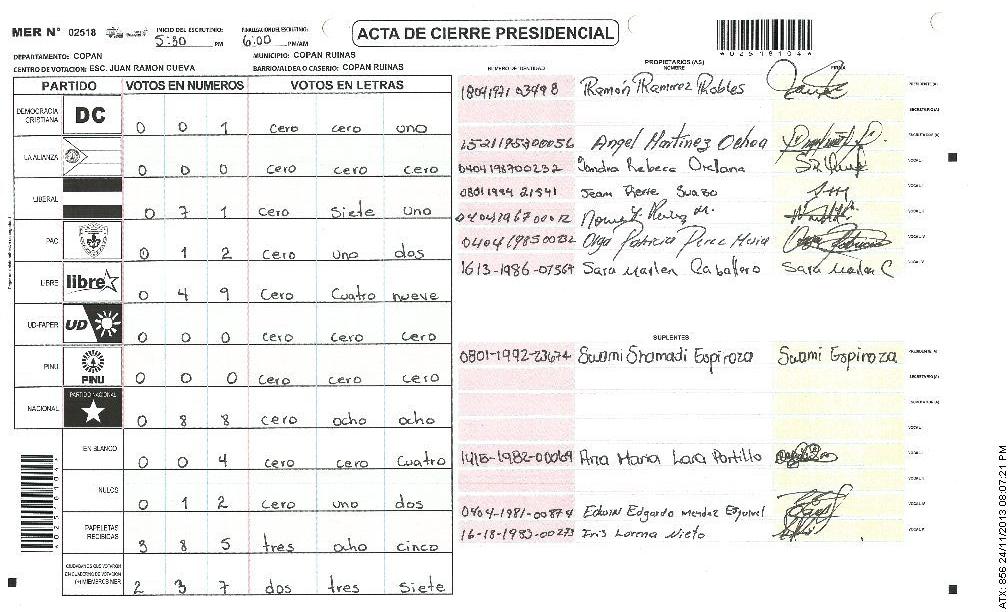 MER N° 02518 INICIO DEL ESCRUTINIO: 5:30 PM FINALIZACION DEL ESCRUTINIO: 6:00 PM/AM
ACTA DE CIERRE PRESIDENCIAL
*02518104*
DEPARTAMENTO: COPAN MUNICIPIO: COPAN RUINAS
CENTRO DE VOTACION: ESC. JUAN RAMON CUEVA BARRIO/ALDEA O CASERIO: COPAN RUINAS
PARTIDO VOTOS EN NUMEROS VOTOS EN LETRAS
DEMOCRACIA CRISTIANA DC 0 0 1 cero cero uno
LA ALIANZA 0 0 0 cero cero cero
LIBERAL 0 7 1 cero siete uno
PAC 0 1 2 cero uno dos
LIBRE libre 0 4 9 cero cuatro nueve
UD-FAPER UD 0 0 0 cero cero cero
PINU PINU 0 0 0 cero cero cero
NACIONAL PARTIDO NACIONAL 0 8 8 cero ocho ocho
EN BLANCO 0 0 4 cero cero cuatro
NULOS 0 1 2 cero uno dos
PAPELETAS RECIBIDAS 3 8 5 tres ocho cinco
CIUDADANOS QUE VOTARON EN CUADERNO DE VOTACION (+) MIEMBROS MER 2 3 7 dos tres siete
*02518104*
NUMERO DE IDENTIDAD PROPIETARIOS (AS) NOMBRE FIRMA
1804 1971 03498 Ramón Ramirez Robles PRESIDENTE (A)
SECRETARIO (A)
1521195300056 Angel Martinez Ochoa
0404198700232 Sandra Rebeca Orellana VOCAL I
0801 1994 21541 Jean Pierre Suazo
04041967 00012
0404 1985 0032 Olga Patricia Perez
1613-1986-07564 Sara Marlen Caballero Sara Marlen C
SUPLENTES
0801-1992-23674 Swami Shamadi Espinoza Swami Espinoza PRESIDENTE (A)
SECRETARIO (A)
1418-1982-00069 Ana Maria Lara Portillo
0404-1981-00874 Edwin Edgardo Mendez Esquivel
16-18-1983-00273 Iris Lorena Nieto
ATX: 856 24/11/2013 08:07:21 PM